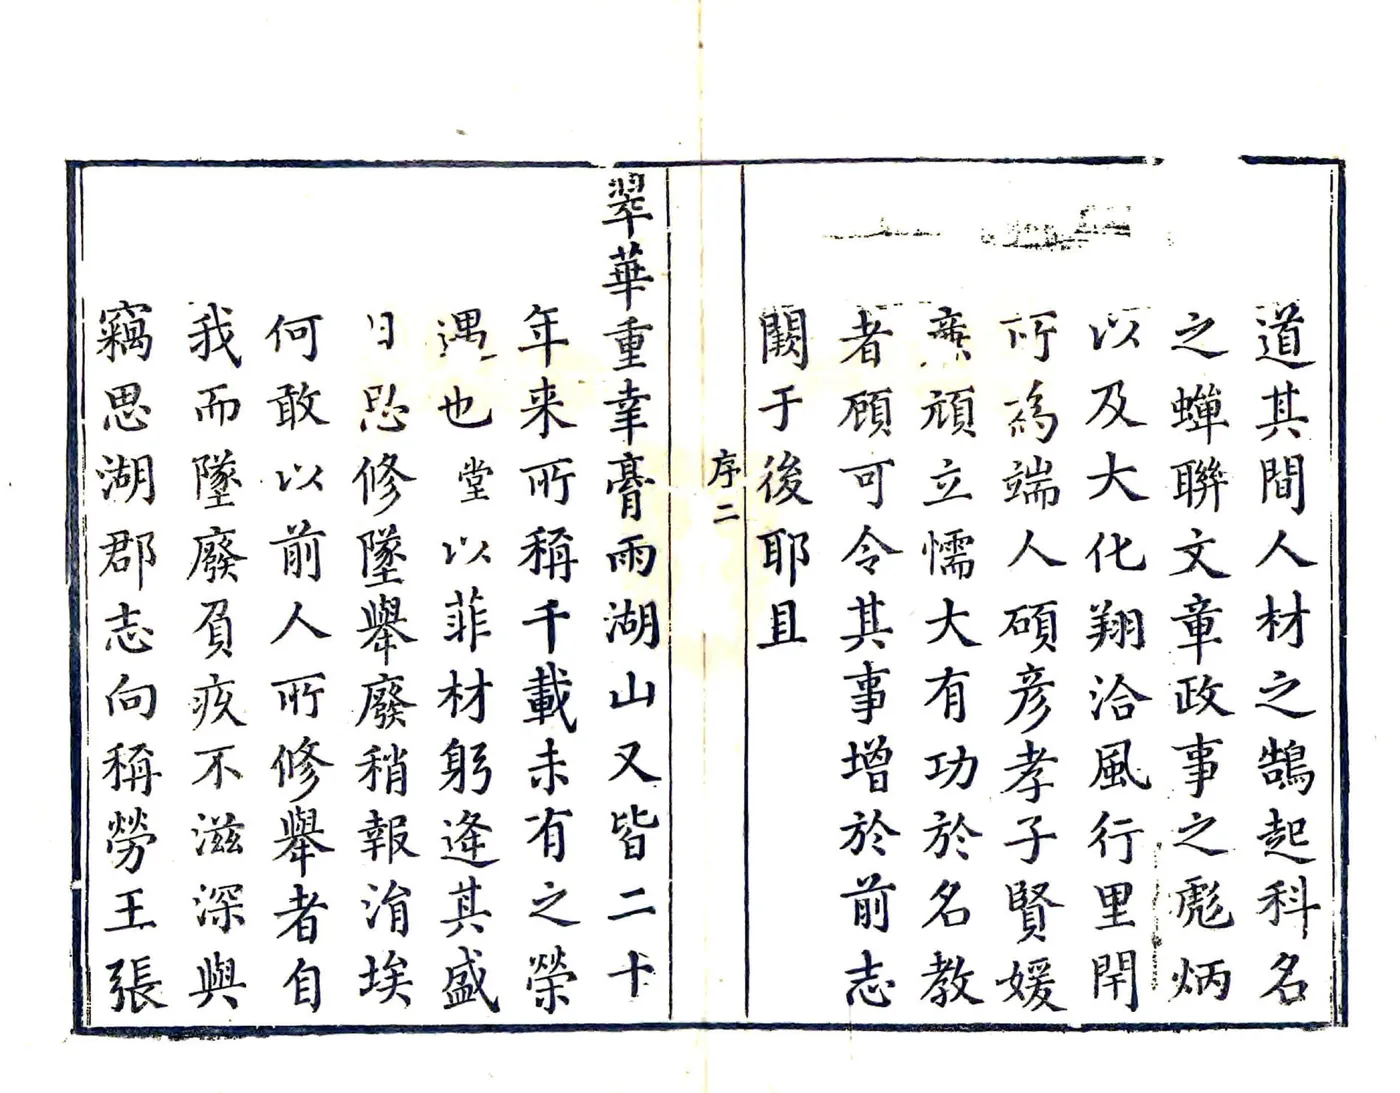 道其間人材之鵠起科名
之蟬聯文章政事之彪炳
以及大化翔洽風行里閈
所為端人碩彦孝子賢媛
廉頑立懦大有功於名教
者顧可令其事增於前志
闕于後耶且
序二
翠華重幸膏雨湖山又皆二十
年来所稱千載未有之榮
遇也堂以菲材躬逢其盛
日思修墜舉廢稍報涓埃
何敢以前人所修舉者自
我而墜廢負疚不滋深與
竊思湖郡志向稱勞王張